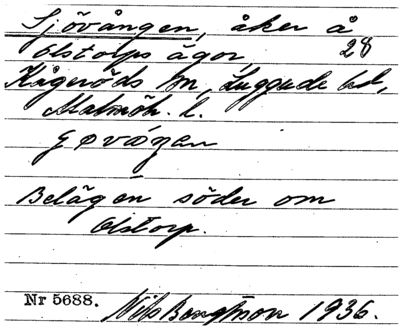 Sjövången, åker å
Olstorps ägor, 28
Kågeröds sn, Luggude hd,
Malmöh. l.
Belägen söder om
Olstorp.
Nr 5688. Nils Bengtsson 1936.